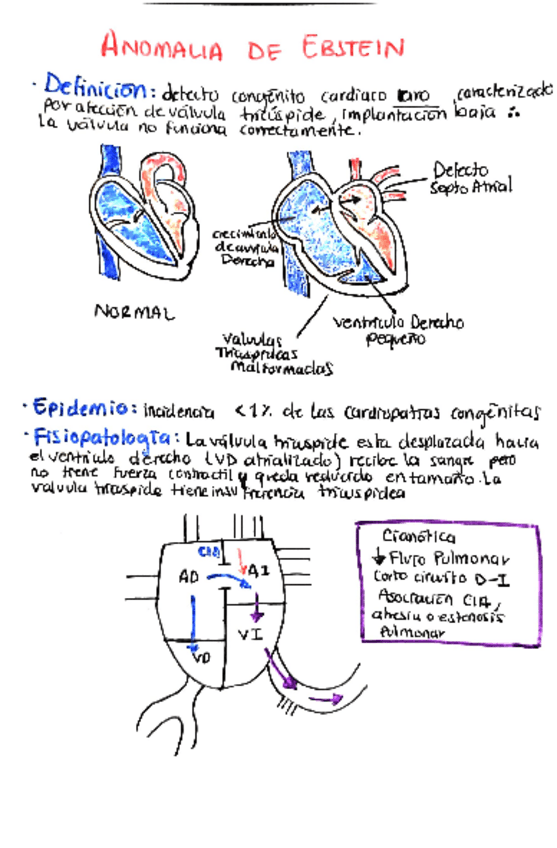 ANOMALIA DE EBSTEIN
· Definición: defecto congénito cardiaco raro, caracterizado
por afección de válvula tricúspide, implantación baja ∴
La válvula no funciona correctamente.
Defecto
Septo Atrial
crecimiento
de aurícula
Derecha
NORMAL
ventriculo Derecho
pequeño
Valvulas
Tricuspideas
Malformadas
· Epidemio: incidencia <1% de las cardiopatias congénitas
· Fisiopatología: La válvula tricuspide esta desplazada hacia
el ventriculo derecho (VD atrializado) recibe la sangre pero
no tiene fuerza contractil y queda reducido en tamaño. La
valvula tricuspide tiene insuficiencia tricuspidea
CIA
AD
AI
VI
VD
Cianótica
↓ Flujo Pulmonar
Corto circuito D-I
Asociación CIA,
atresia o estenosis
Pulmonar